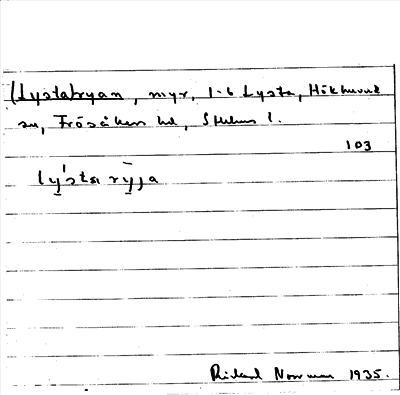 (Lystabryan, myr, 1-6 Lysta, Hökhuvud
sn, Frösåkers hd, Sthlms l.
103
lýsta rȳja
Rickard Norrman 1935.